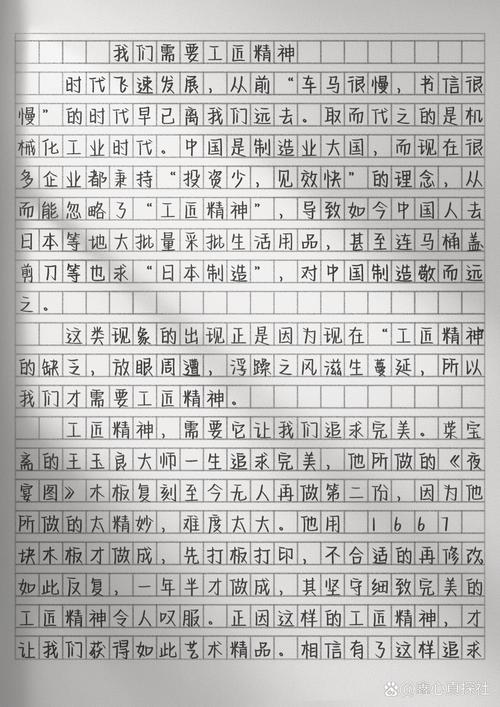 我们需要工匠精神
时代飞速发展，从前“车马很慢，书信很
慢”的时代早已离我们远去。取而代之的是机
械化工业时代。中国是制造业大国，而现在很
多企业都秉持“投资少，见效快”的理念，从
而能忽略了“工匠精神”，导致如今中国人去
日本等地大批量采批生活用品，甚至连马桶盖
剪刀等也求“日本制造”，对中国制造敬而远
之。
这类现象的出现正是因为现在“工匠精神
的缺乏，放眼周遭，浮躁之风滋生蔓延，所以
我们才需要工匠精神。
工匠精神，需要它让我们追求完美。荣宝
斋的王玉良大师一生追求完美，他所做的《夜
宴图》木板复刻至今无人再做第二份，因为他
所做的太精妙，难度太大。他用 1667
块木板才做成，先打板打印，不合适的再修改
如此反复，一年半才做成，其坚守细致完美的
工匠精神令人叹服。正因这样的工匠精神，才
让我们获得如此艺术精品。相信有了这样追求
盍心真探社